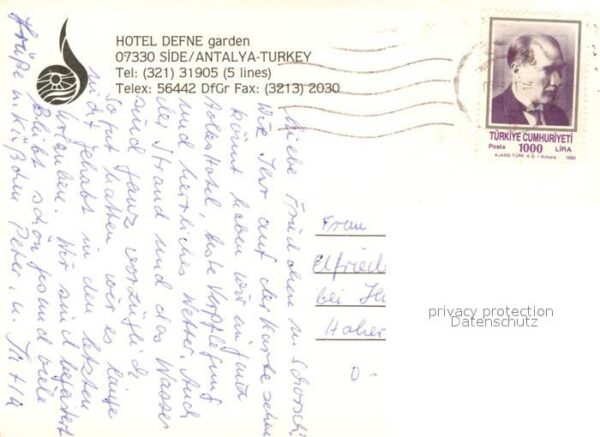 HOTEL DEFNE garden
07330 SİDE/ANTALYA-TURKEY
Tel: (321) 31905 (5 lines)
Telex: 56442 DfGr Fax: (3213) 2030
TÜRKİYE CUMHURİYETİ
Posta 1000 LİRA
AJANS-TÜRK A.Ş. / Ankara 1990
Liebe Friedchen u. Schorsch!
Wie Ihr auf der Karte sehen
könnt haben wir ein
Hotel, beste Verpflegung
und herrliches Wetter. Auch
der Strand und das Wasser
sind ganz vorzüglich.
So gut hatten wir es lange
nicht gehabt in den letzten
Urlauben. Wir sind begeistert
Bleibt schön gesund viele
Grüße u. Küßchen Peter u. Jutta
Frau
Elfried
bei
Hoher
D-
privacy protection
Datenschutz